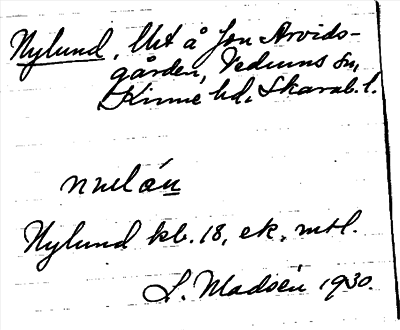 Nylund, lht å fsn Arvids-
gården, Vedums sn,
Kinne hd, Skarab. l.
Nylund kb. 18, ek. mtl.
L. Madsén 1930.